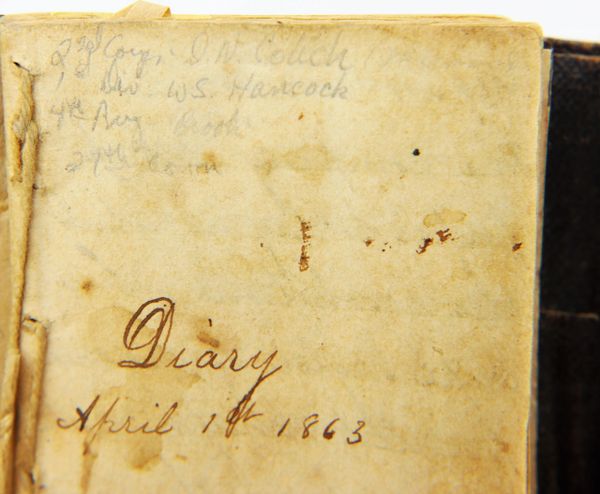 2nd Corps. D. N. Couch
1st Div. W S. Hancock
4th Brig. Brook
27th Conn
Diary
April 1st 1863